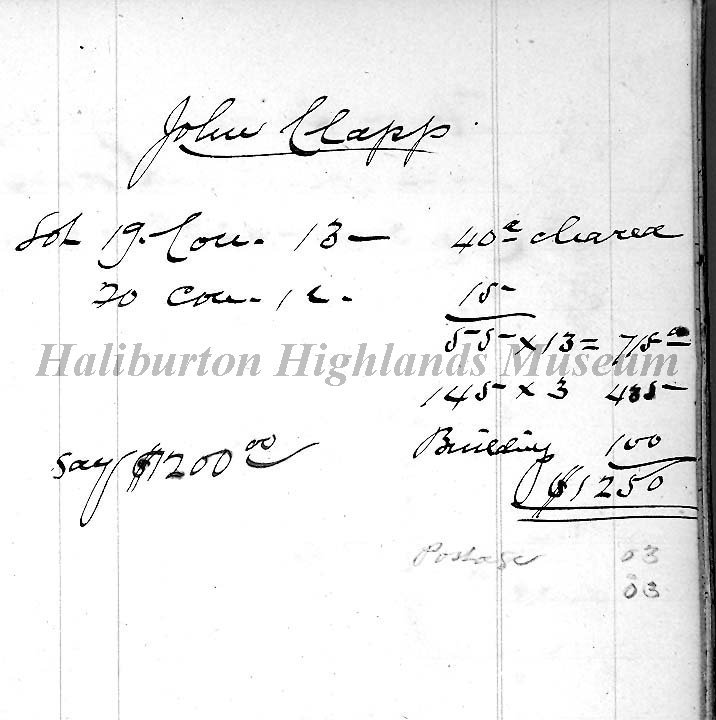 John Clapp
Lot 19. Con. 13 — 40a cleared
20 Con. 12. 15
55 x 13 = 715
Haliburton Highlands Museum
145 x 3 435
Building 100
say $1200.00 $1250
Postage 03
03